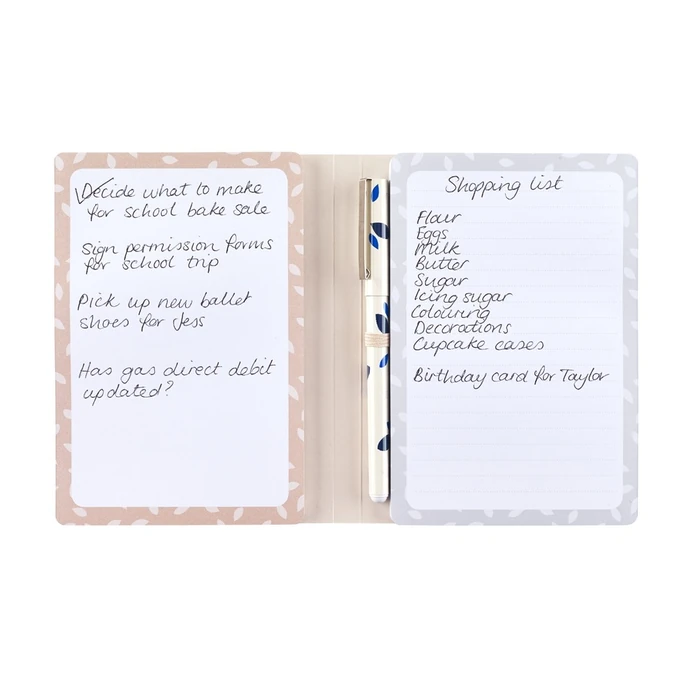 Decide what to make
for school bake sale
Sign permission forms
for school trip
Pick up new ballet
shoes for Jess
Has gas direct debit
updated?
Shopping list
Flour
Eggs
Milk
Butter
Sugar
Icing sugar
Colouring
Decorations
Cupcake cases
Birthday card for Taylor